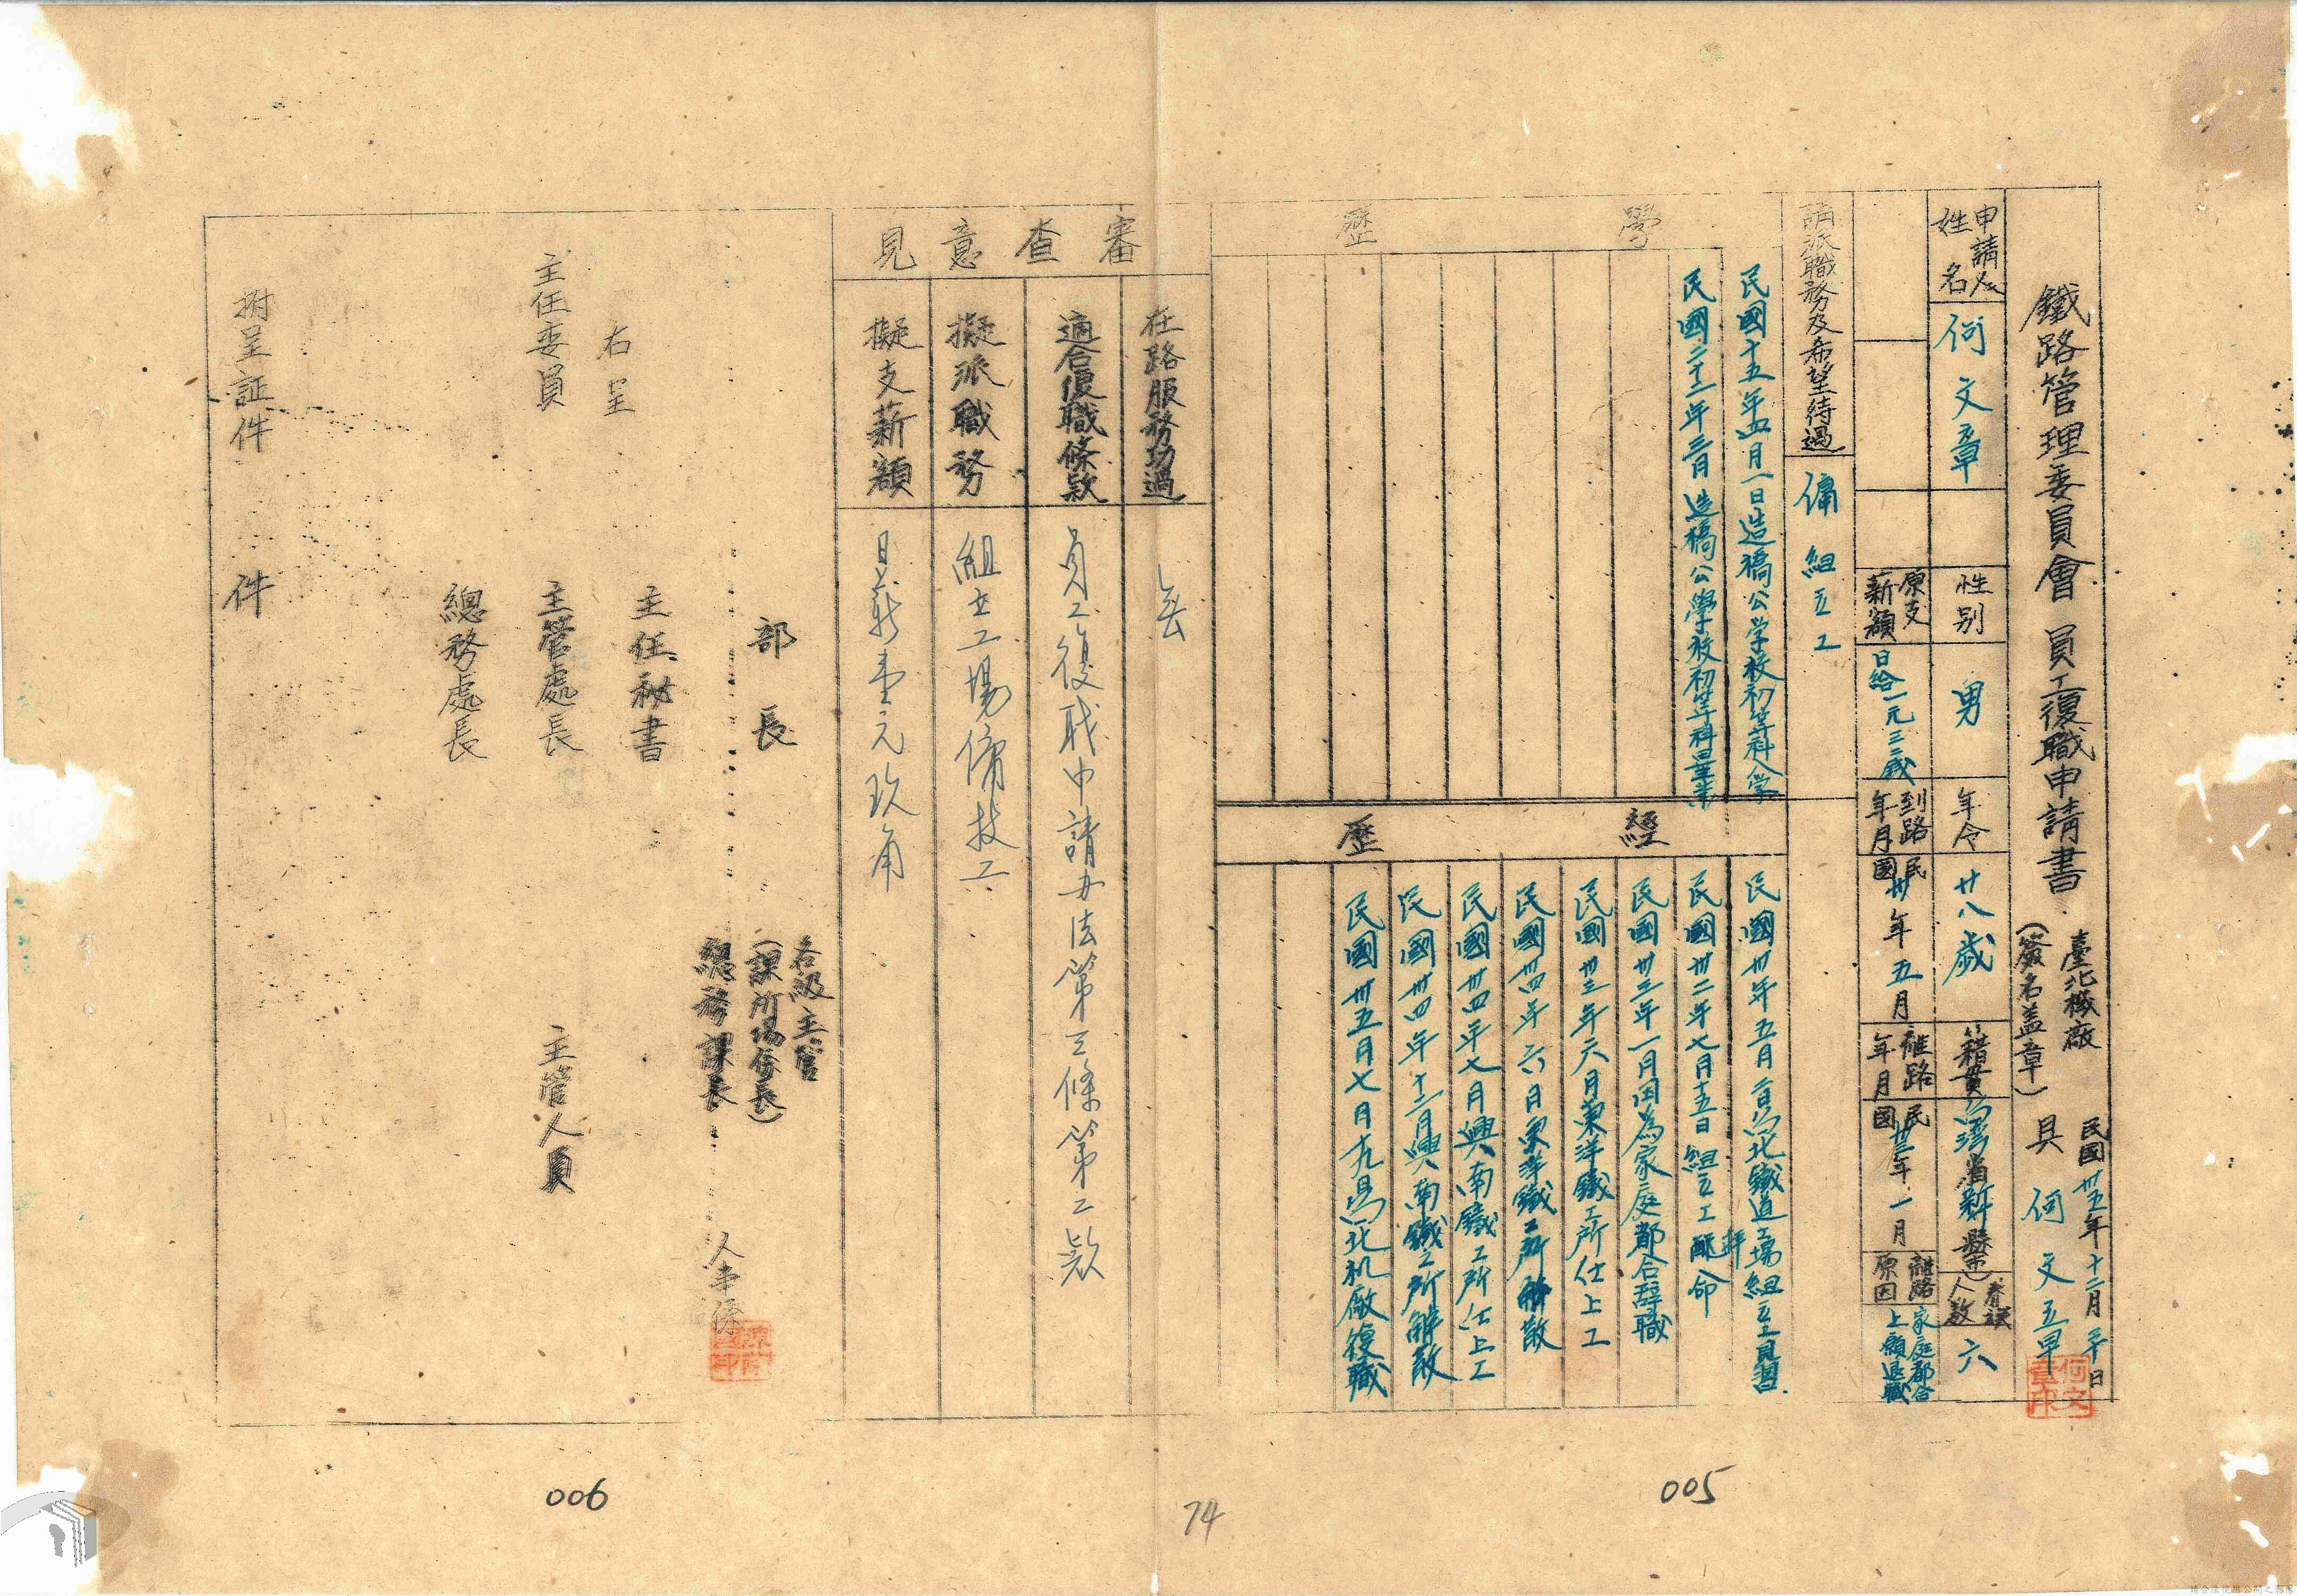 鐵路管理委員會 員工復職申請書
臺北機廠
(簽名盖章)
民國卅五年十二月 日
具 何文章
申請人姓名 何文章
性别 男
年令 廿八歲
籍貫 台湾省新竹縣
眷談人数 六
原支薪額 日給一元三、二戋
到路年月 民國卅年五月
離路年月 民國卅三年一月
離路原因 家庭都合上願退職
請派職務及希望待過 傭 組立工
學歷
民國十五年四月一日造橋公学校初等科入学
民國二十二年三月造橋公學校初等科畢業
經歷
民國卅年五月 台北鐵道工場組立工見習
民國卅二年七月十五日 組立工配 命
民國卅三年一月因為家庭都合辞職
民國卅三年六月東洋鐵工所仕上工
民國卅四年六月東洋鐵工所 解散
民國卅四年七月興南鐵工所仕上工
民國卅四年十二月興南鐵工所解散
民國卅五月七月十九 台北机廠復職
審查意見
在路服務功過 無
適合復職條款 員工復職申請办法第三條第二款
擬派職務 組立工場傭技工
擬支薪額 日薪壹元玖角
各級主管
(課所場係長)
部長
總務課長
人事係
主任秘書
右呈
主任委員
主管處長
主管人員
總務處長
附呈証件 件
006
74
005
何文章印